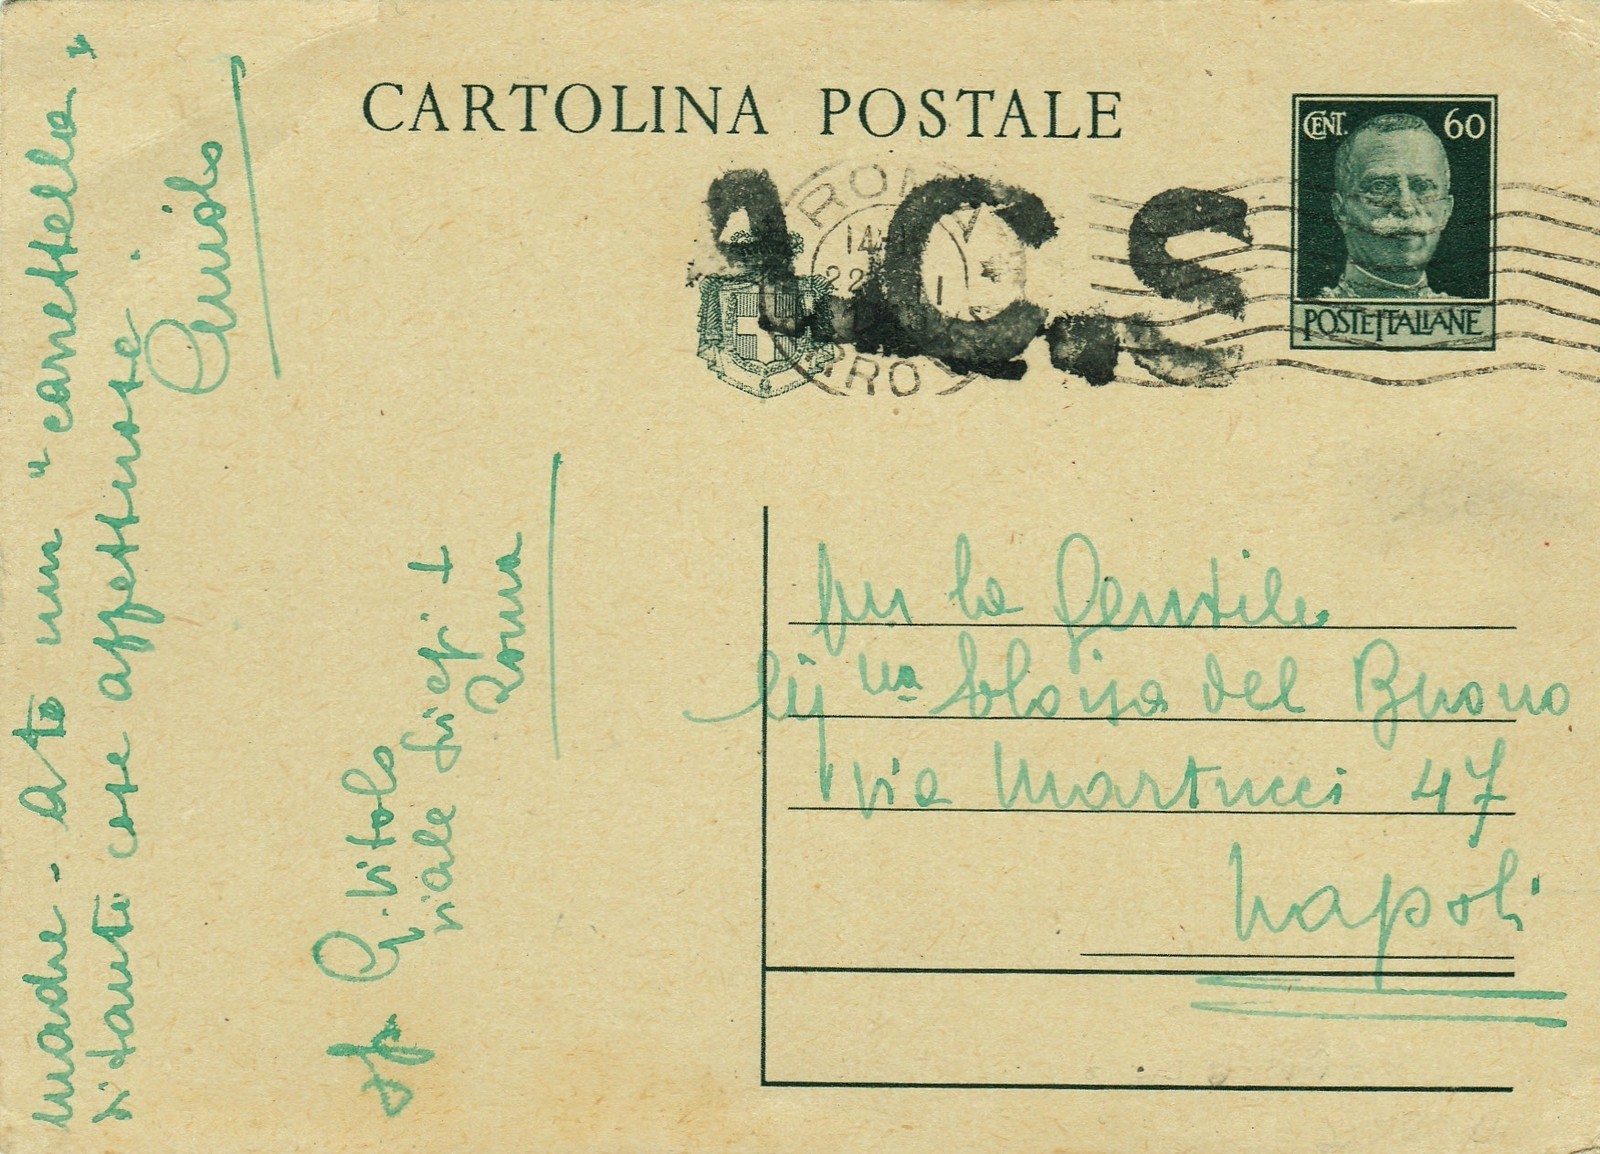 CARTOLINA POSTALE
CENT. 60
POSTE ITALIANE
A.C.S
ROMA
14
22 I
per la Gentile
Sig.na Eloisa del Buono
via Martucci 47
Napoli
madre - a te un "carettella"
di tante cose affettuose
Guido
G. Vitolo
viale Liegi 1
Roma